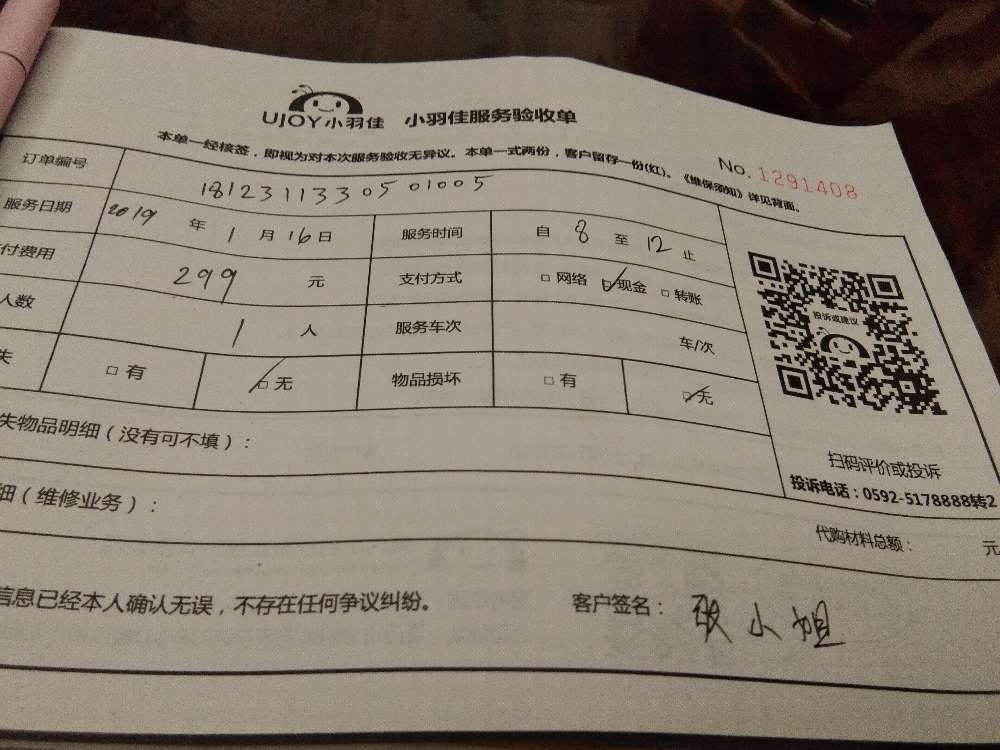 UJOY小羽佳 小羽佳服务验收单
本单一经核签，即视为对本次服务验收无异议。本单一式两份，客户留存一份(红)。《维保须知》详见背面。
No. 1291408
订单编号 181231133050 1005
服务日期 2019 年 1 月 16 日 服务时间 自 8 至 12 止
付费用 299 元 支付方式 □ 网络 ☑ 现金 □ 转账
人数 1 人 服务车次 车/次
失 □ 有 ☑ 无 物品损坏 □ 有 ☑ 无
投诉或建议
扫码评价或投诉
投诉电话：0592-5178888转2
失物品明细（没有可不填）：
细（维修业务）：
代购材料总额： 元
信息已经本人确认无误，不存在任何争议纠纷。 客户签名： 张小姐